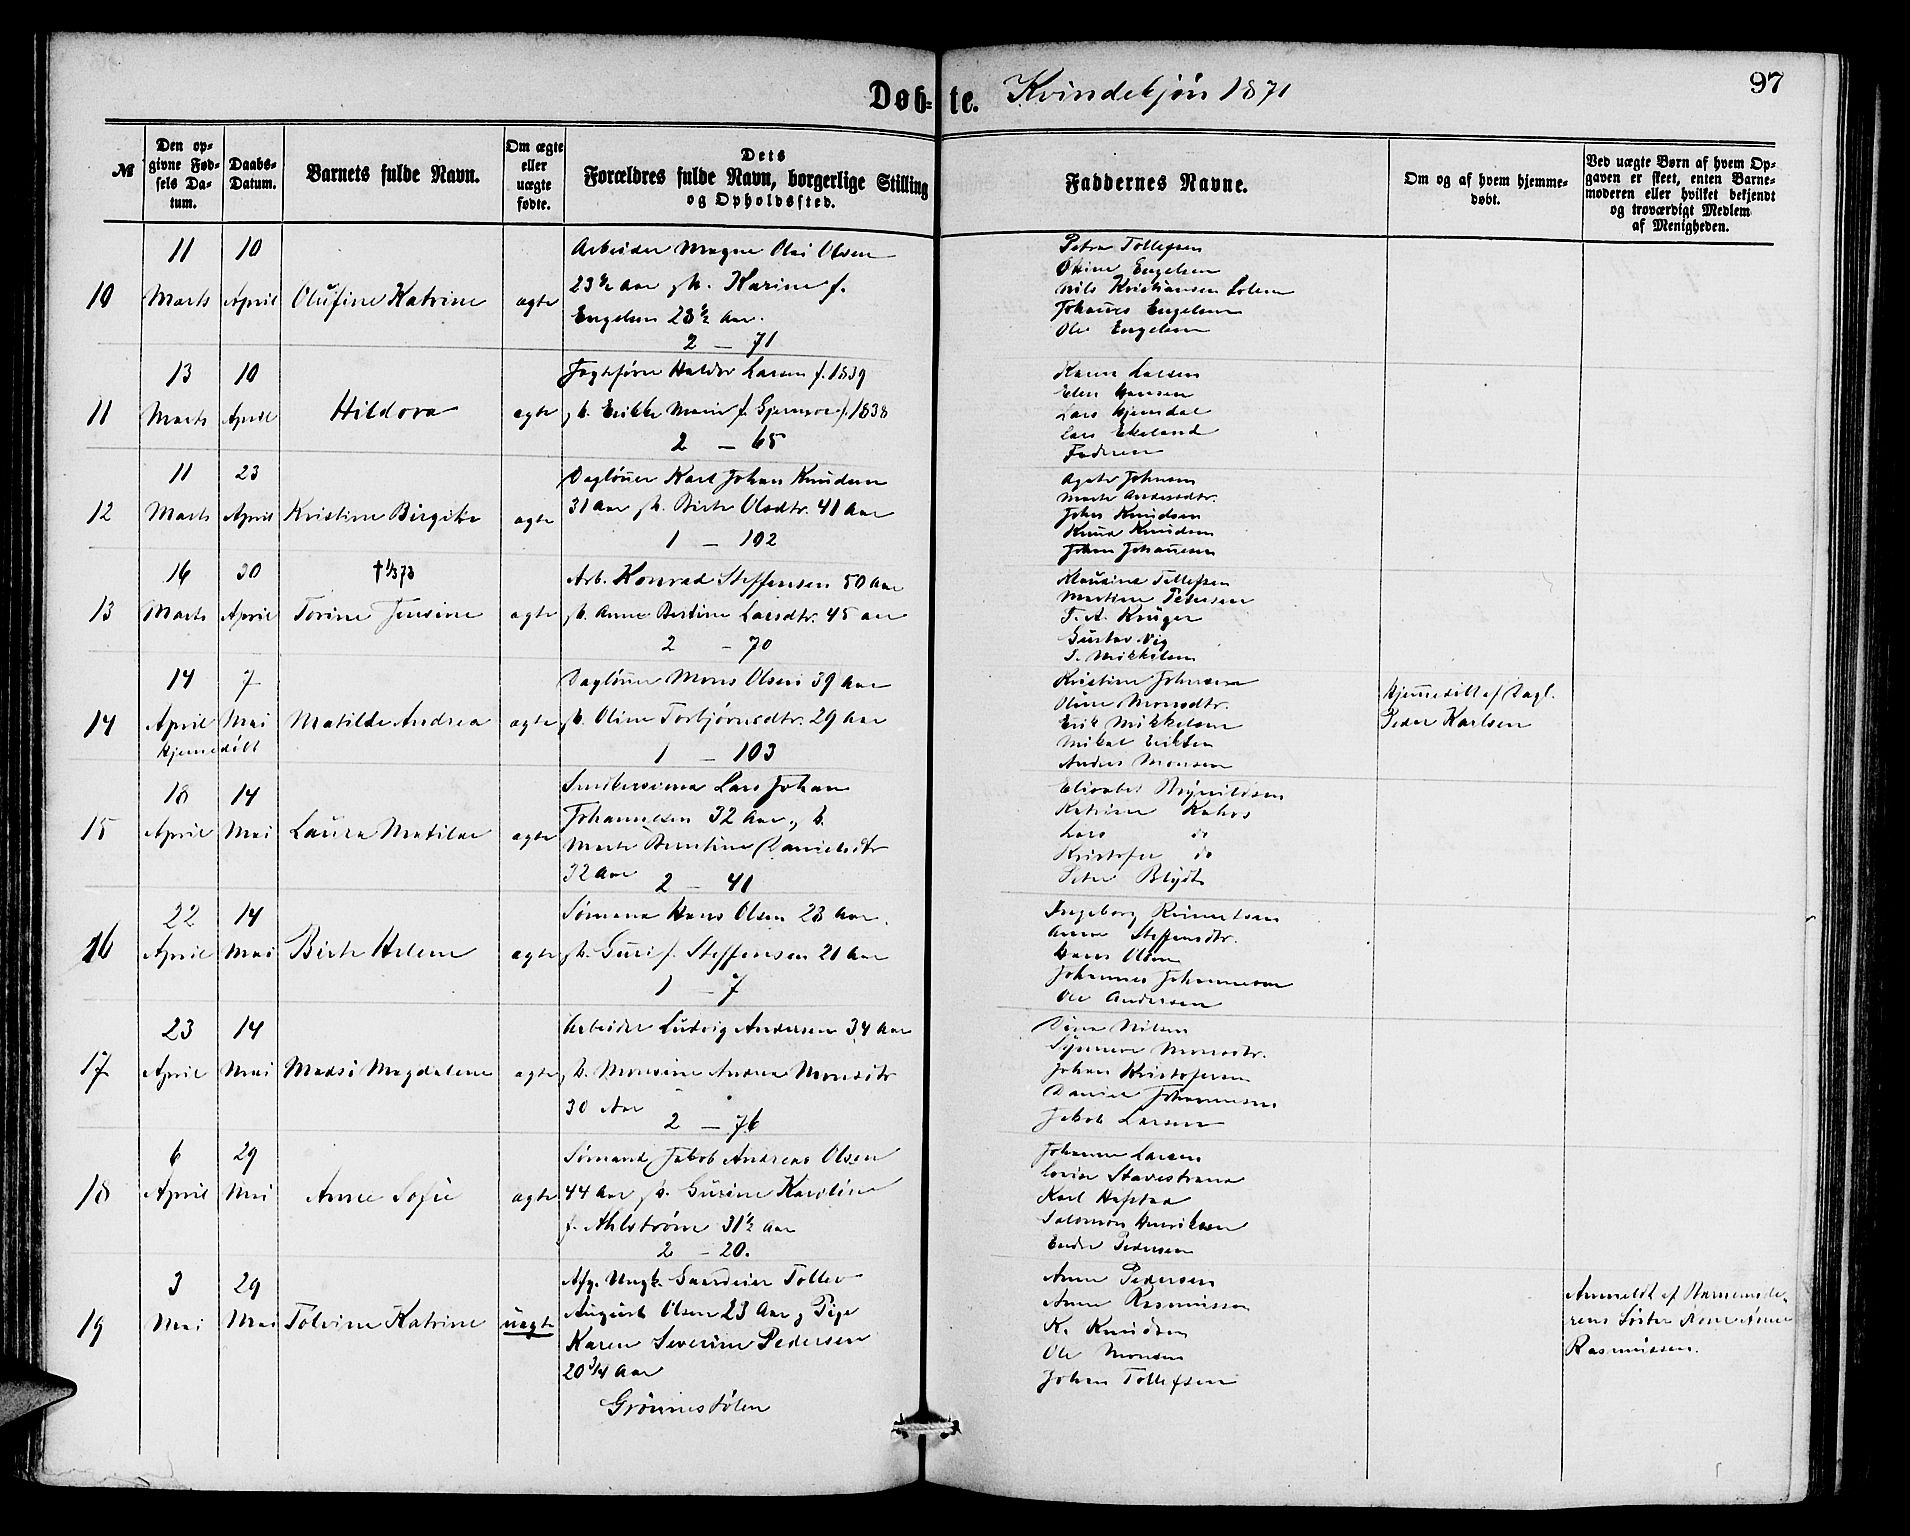 97
Døb-te. Kvindekjøn 1871
№
Den op-
givne Fød-
sels Da-
tum.
Daabs-
Datum.
Barnets fulde Navn.
Om ægte
eller
uægte
fødte.
Dets
Forældres fulde Navn, borgerlige Stilling
og Opholdssted.
Faddernes Navne.
Om og af hvem hjemme-
døbt.
Ved uægte Børn af hvem Op-
gaven er skeet, enten Barne-
moderen eller hvilket bekjendt
og troværdigt Medlem
af Menigheden.
10
11 Marts
10 April
Olufine Katrine
ægte
Arbeider Mogne Olai Olsen
23½ Aar, h. Karine f.
Engelsen 23½ Aar.
2 – 71
Petra Tollefsen
Engelsen
Nils Kristiansen
Johannes Engelsen
Ole Engelsen
11
13 Marts
10 April
Hildora
ægte
Jagtfører Haldor Larsen f. 1839
h. Erikke Marie f. 1838
2 – 65
Karen Larsen
Elen Hansen
Lars
Lars Ekeland
Faderen
12
11 Marts
23 April
Kristine Birgitte
ægte
Dagløner Karl Johan Knudsen
31 Aar h. Birte Olsdtr. 41 Aar
1 – 102
Agate Johnsen
Marte Andersdtr.
John Knudsen
Knud Knudsen
Johan Johannesen
13
16 Marts
30 April
† 1/3 73
Torine Jensine
ægte
Arb. Konrad Steffensen 50 Aar
h. Anne Bertine Larsdtr. 45 Aar
2 – 70
Tollefsen
Martine Petersen
T. A. Krüger
Gustav Vig
T. Mikkelsen
14
14 April
7 Mai
Hjemmedøbt
Matilde Andrea
ægte
Dagløner Mons Olsen 39 Aar
h. Oline Torbjørnsdtr. 29 Aar
1 – 103
Kristine Johnsen
Oline Monsdtr.
Erik Mikkelsen
Mikal Eriksen
Anders Monsen
Hjemmedøbt af Dagl.
Peder Karlsen
15
18 April
14 Mai
Laura Matilde
ægte
Snedkersvend Lars Johan
Johannesen 32 Aar, h.
Marte Berntine Danielsdtr
32 Aar
2 – 41
Elisabet
Katrine Kahrs
Lars do
Kristofer do
Petra Blydt
16
22 April
14 Mai
Birte Helene
ægte
Sømand Hans Olsen 23 Aar.
h. Guri f. Steffensen 21 Aar
1 – 7
Ingeborg Reinertsen
Anne Steffensdtr.
Hans Olsen
Johannes Johannesen
Ole Andersen
17
23 April
14 Mai
Madsi Magdalene
ægte
Arbeider Ludvig Andersen 34 Aar
h. Monsine Andrea Monsdtr
30 Aar
2 – 76
Dina Nilsen
Synneve Monsdtr.
Johan Kristofersen
Daniel Johannesen
Jakob Larsen
18
6 April
29 Mai
Anne Sofie
ægte
Sømand Jakob Andreas Olsen
44 Aar, h. Gurine Karoline
f. Ahlstrøm 31½ Aar
2 – 20.
Johanne Larsen
Stavestrand
Karl Hafstad
Salomon Henriksen
Endre Pedersen
19
3 Mai
29 Mai
Tolvine Katrine
uægte
Afg. Ungk. Gaardeier Tollev
August Olsen 23 Aar, Pige
Karen Severine Pedersen
20 3/4 Aar
Grønnestølen
Anne Pedersen
Anne Rasmussen
K. Knudsen
Ole Monsen
Johan Tollefsen
Anmeldt af Barnemode-
rens Søster Kone Anne
Rasmussen.